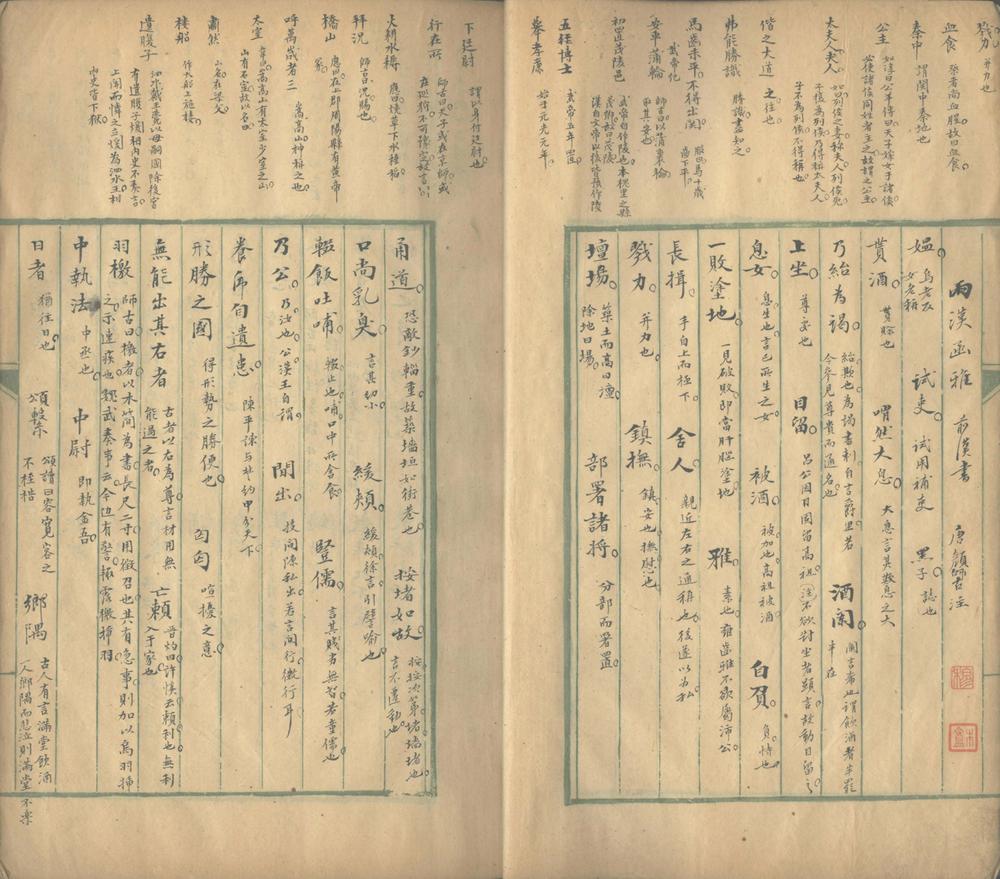 戮力 并力也
秦中 謂關中秦地也
血食 祭者尚血腥故曰血食
公主 如淳曰公羊傳曰天子嫁女于諸侯
必使諸侯同姓者主之故謂之公主
太夫人夫人 如淳曰列侯之妻称夫人列侯死
子復為列侯乃得称太夫人
子不為列侯不得称也
偕之大道 之往也
弗能勝識 勝識盡知之
馬齒未平不得出關 服曰馬十歲
齒下平
武帝紀
安車蒲輪 師古曰以蒲裹輪
取其安也
初置茂陵邑 武帝自作陵也本槐里之縣
茂鄉故曰茂陵
漢自文帝以後皆預作陵
五经博士 武帝五年置
舉孝廉 始于元光元年
兩漢函雅 前漢書 唐顔師古注
媪 烏老反
女老稱
试吏 试用補吏 黑子 誌也
貰酒 貰賒也 喟然大息 大息言其歎息之大
乃紿為謁 紿欺也為謁書刺自言爵里若
今參見尊貴而通名也
酒闌 闌言希也謂飲酒者半罷
半在
上坐 尊處也 目留 呂公因目固留高祖
息女 息生也言己所生之女 被酒 被加也高祖被酒 自負 負恃也
一敗塗地 一見破敗即當肝腦塗地 雅 素也雍齒雅不欲屬沛公
長揖 手自上而極下 舍人 親近左右之通稱也後遂以為私
戮力 并力也 鎮撫 鎮安也撫慰也
壇場 築土而高曰壇
除地曰場
部署諸将 分部而署置
下廷尉 謂以身付廷尉也
行在所 師古曰天子或在京師或
在巡狩不可豫定故言
火耕水耨 應曰燒草下水種稻
拜況 師古曰況賜也
橋山 應曰在上郡周陽縣有黄帝
冢
呼萬歲者三 嵩高山神称之也
太室 嵩高山有太室少室之山
山有石室故以名曰
肅然 山名在梁父
樓船 作大船上施樓
遺腹子 有遺腹子煖相内史不奏言
上聞而憐之立煖為泗水王相
内史皆下獄
甬道 恐敵鈔輜重故築墙垣如街巷也 按堵如故 按按次第堵墙堵也
言不遷動也
口尚乳臭 言其幼小 緩頰 緩頰徐言引譬喻也
輟飯吐哺 輟止也哺口中所含食 豎儒 言其賤劣無智若童儒也
乃公 乃汝也公漢王自謂 間出 投間隙私出若言間行微行耳
養虎自遺患 陳平諫与楚約中分天下
形勝之國 得形勢之勝便也 匈匈 喧擾之意
無能出其右者 古者以右為尊言材用無
能過之者
亡賴 晋灼曰許慎云賴利也無利
入于家也
羽檄 師古曰檄者以木簡為書長尺二寸用徵召也其有急事則加以鳥羽插
之示速疾也魏武奏事云今边有警輒露檄插羽
中執法 中丞也 中尉 即執金吾
日者 猶往日也 頌繫 頌讀曰容寬容之
不桎梏
鄉隅 古人有言滿堂飲酒
一人鄉隅而悲泣則滿堂不樂